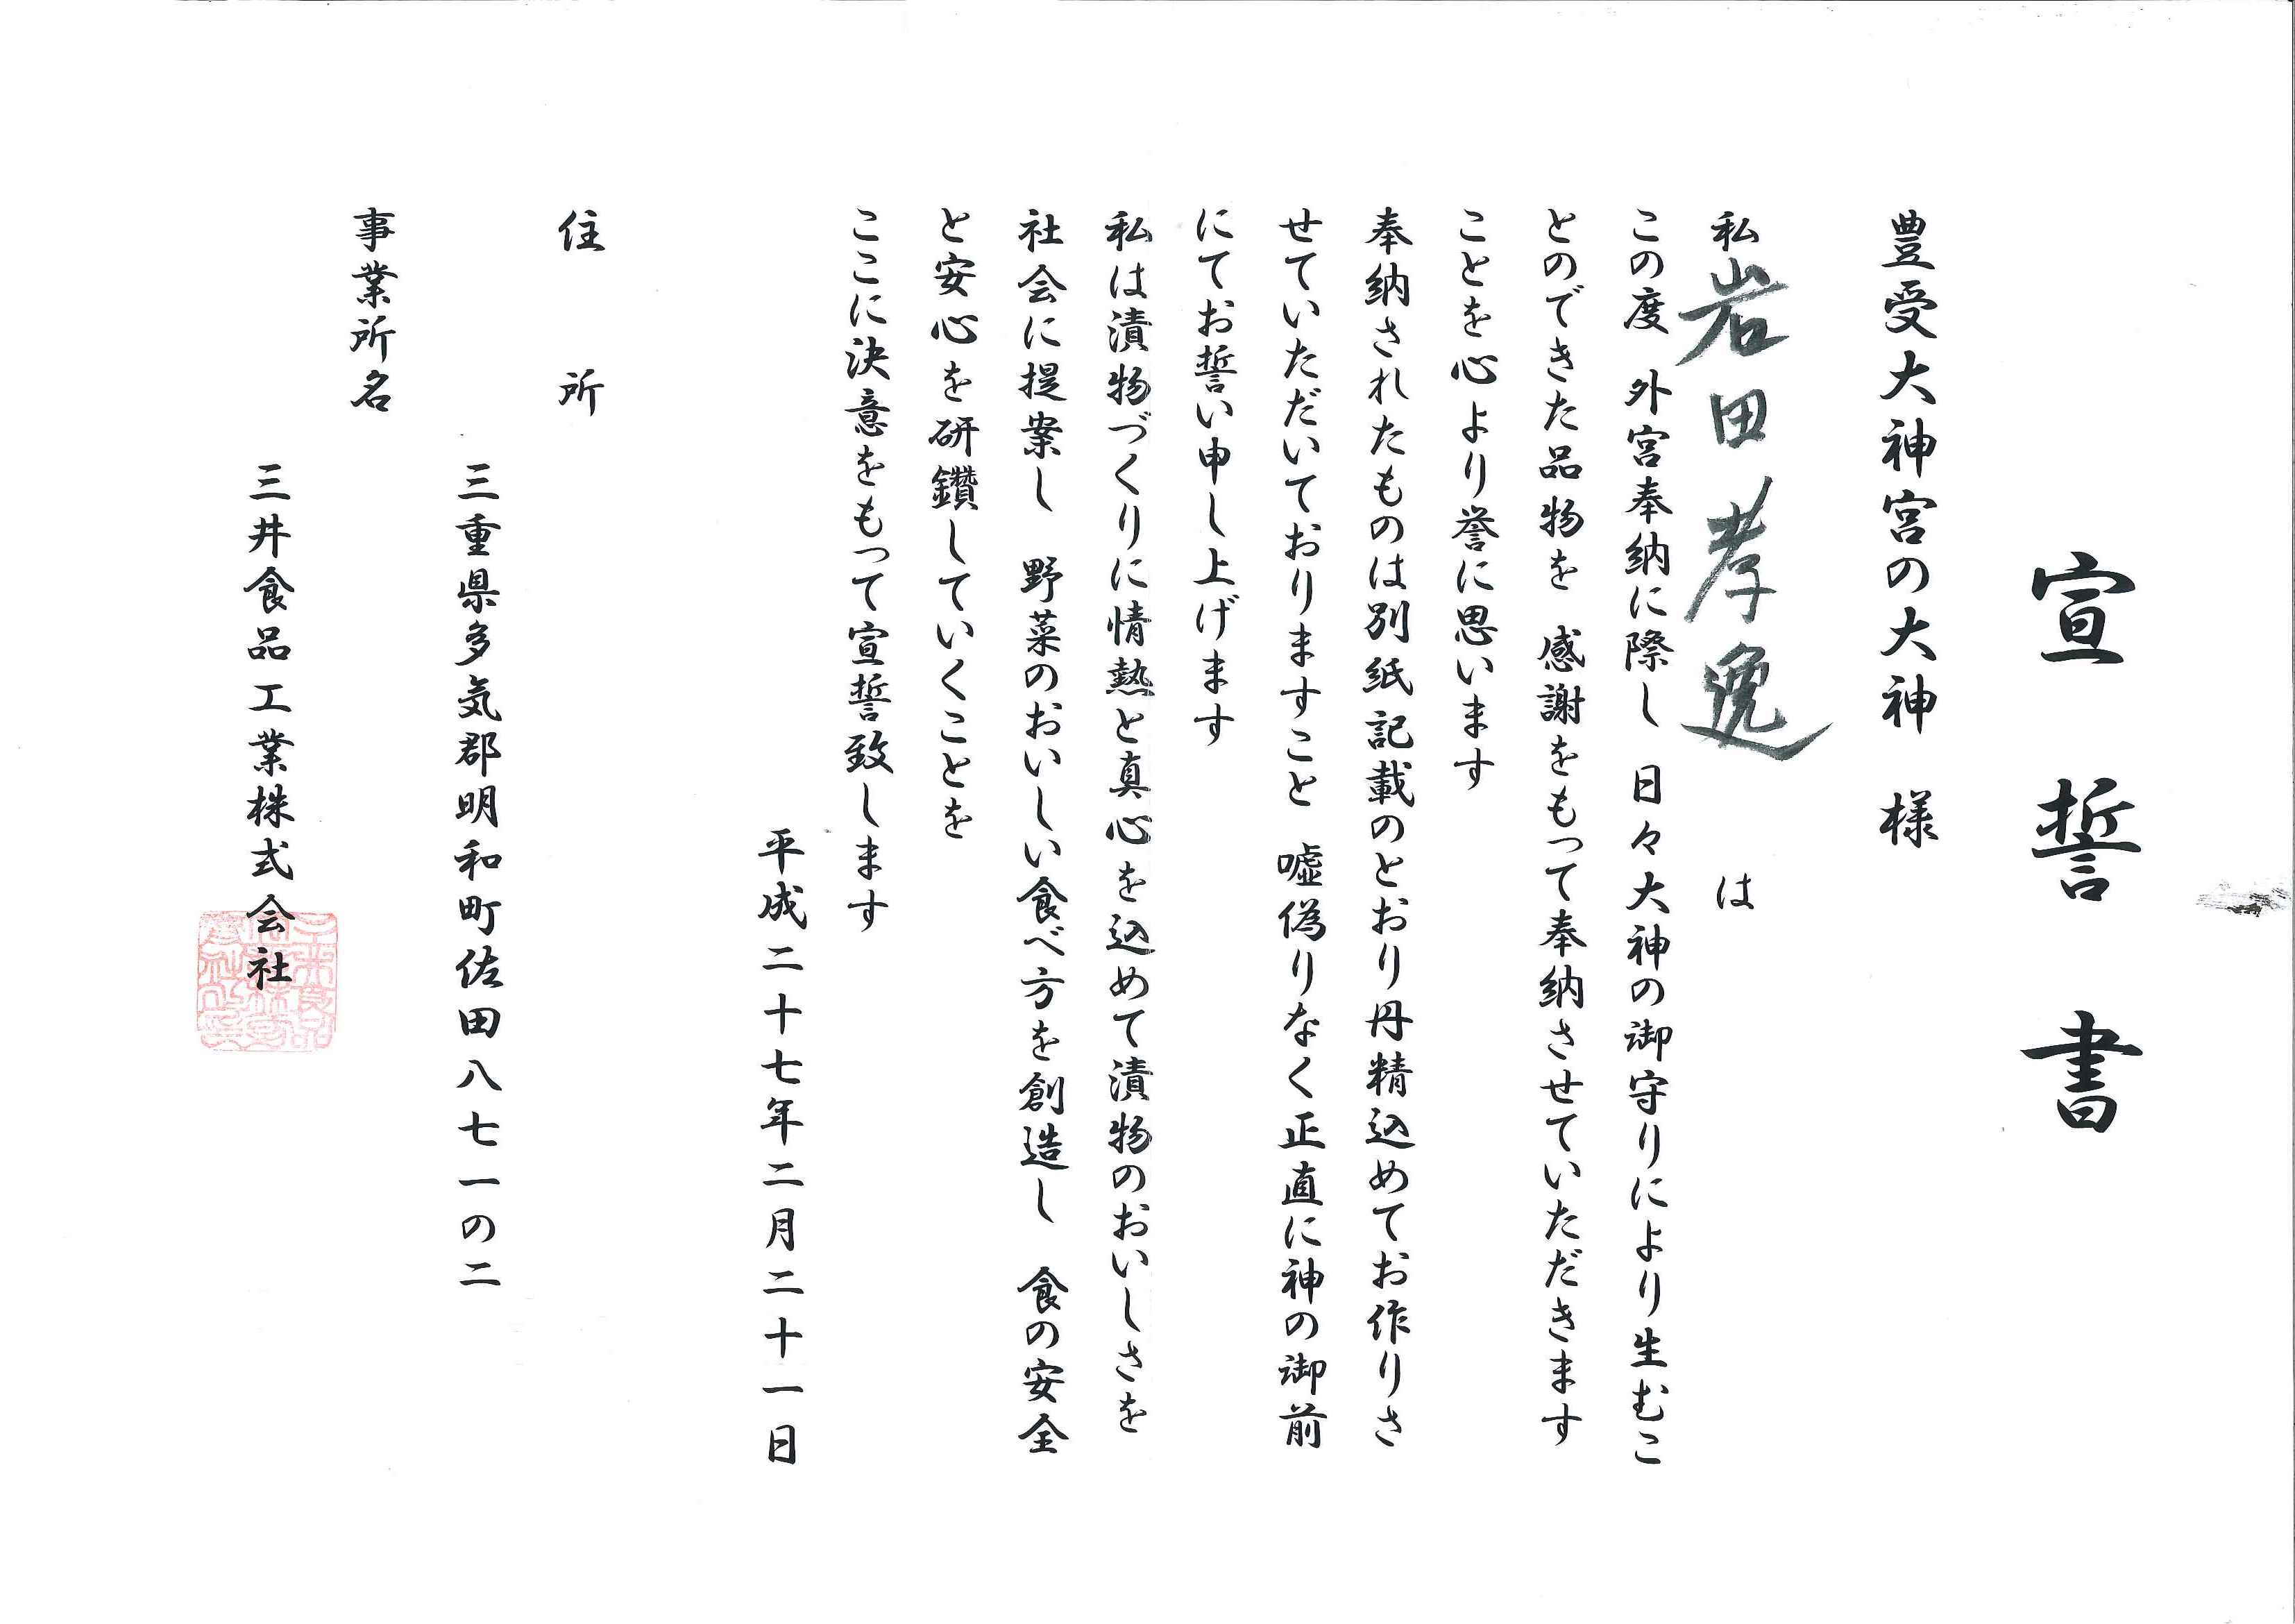 宣誓書
豊受大神宮の大神 様
私 岩田孝逸 は
この度 外宮奉納に際し 日々大神の御守りにより生むこ
とのできた品物を 感謝をもって奉納させていただきます
ことを心より誉に思います
奉納されたものは別紙記載のとおり丹精込めてお作りさ
せていただいておりますこと 嘘偽りなく正直に神の御前
にてお誓い申し上げます
私は漬物づくりに情熱と真心を込めて漬物のおいしさを
社会に提案し 野菜のおいしい食べ方を創造し 食の安全
と安心を研鑽していくことを
ここに決意をもって宣誓致します
平成二十七年二月二十一日
住所
三重県多気郡明和町佐田八七一の二
事業所名
三井食品工業株式会社